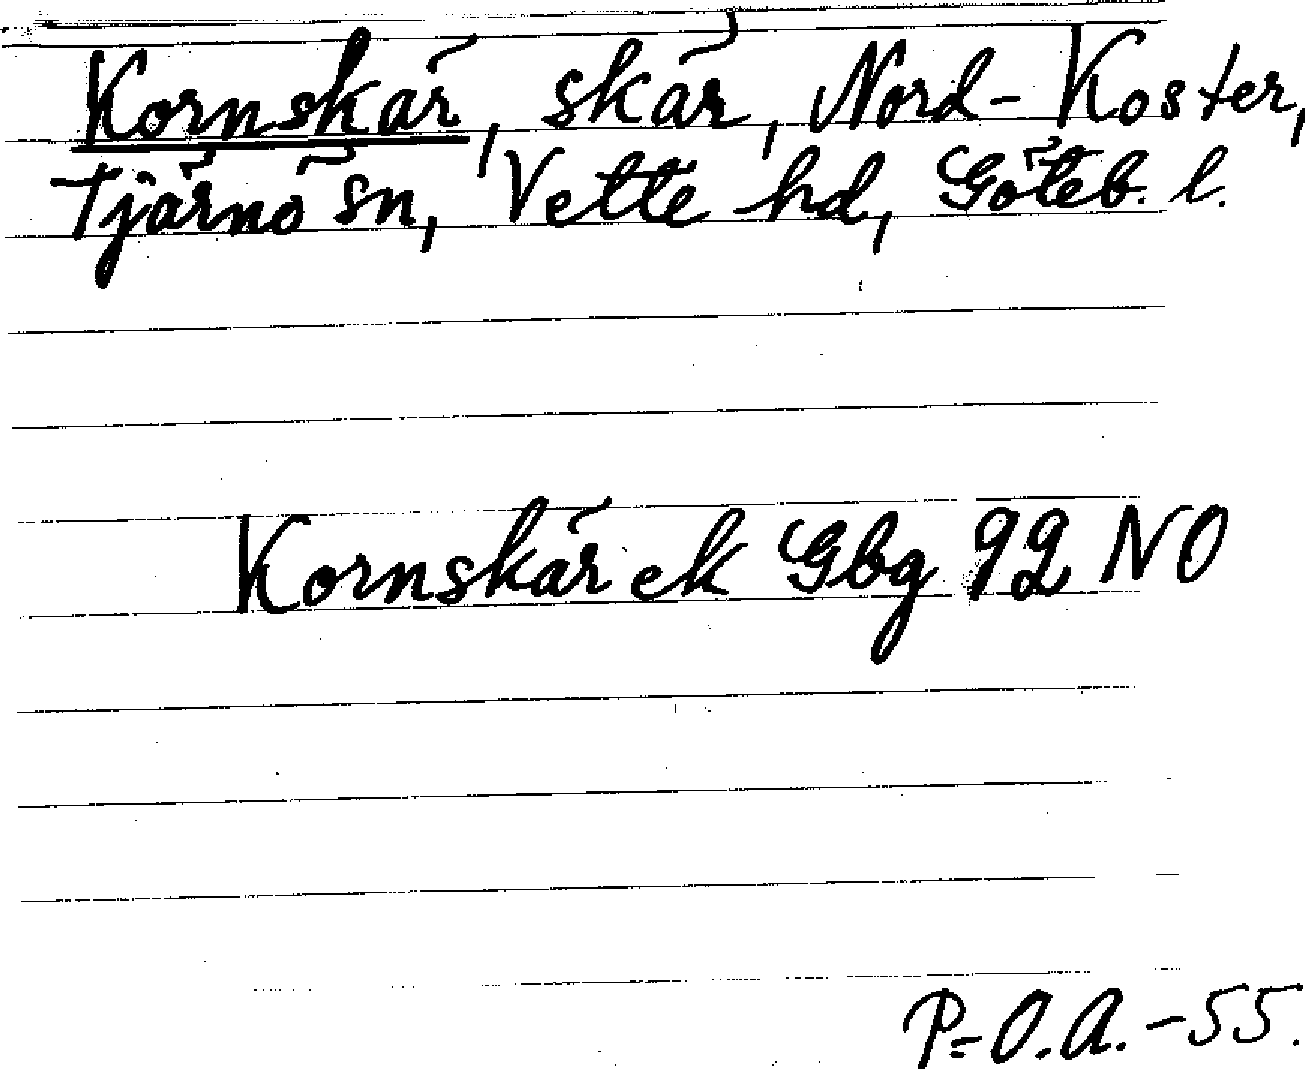 Kornskär, skär, Nord-Koster,
Tjärnö sn, Vette hd, Göteb. l.
Kornskär ek Gbg 92 NO
P=O.A.-55.